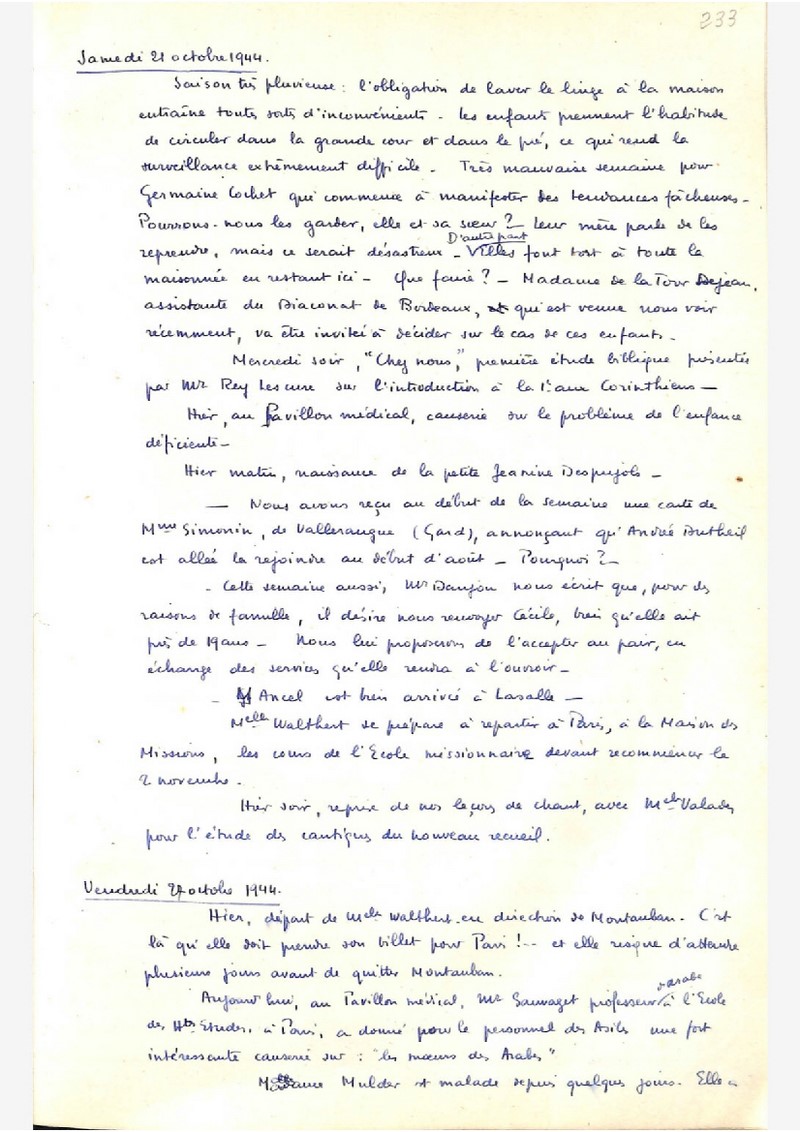 233
Samedi 21 octobre 1944.
Saison très pluvieuse : l'obligation de laver le linge à la maison
entraîne toutes sortes d'inconvénients - les enfants prennent l'habitude
de circuler dans la grande cour et dans le pré, ce qui rend la
surveillance extrêmement difficile - Très mauvaise semaine pour
Germaine Cochet qui commence à manifester des tendances fâcheuses -
Pourrons-nous les garder, elle et sa sœur ? - Leur mère parle de les
D'autre part
reprendre, mais ce serait désastreux - Villes font tort à toute la
maisonnée en restant ici - Que faire ? - Madame de la Tour Dejean,
assistante du Diaconat de Bordeaux, qui est venue nous voir
récemment, va être invitée à décider sur le cas de ces enfants.
Mercredi soir, "Chez nous," première étude biblique présentée
par Mr Rey Lescure sur l'introduction à la 1e aux Corinthiens -
Hier, au Pavillon médical, causerie sur le problème de l'enfance
déficiente -
Hier matin, naissance de la petite Jeanine Despujols -
- Nous avons reçu au début de la semaine une carte de
Mme Simonin, de Valleraugue (Gard), annonçant qu'André
est allée la rejoindre au début d'août - Pourquoi ? -
- Cette semaine aussi, Mr Danjou nous écrit que, pour des
raisons de famille, il désire nous renvoyer Cécile, bien qu'elle ait
près de 19 ans - Nous lui proposerons de l'accepter au pair, en
échange des services qu'elle rendra à l'ouvroir -
- Ancel est bien arrivée à Lasalle -
Melle Walthert se prépare à repartir à Paris, à la Maison des
Missions, les cours de l'Ecole missionnaire devant recommencer le
2 novembre.
Hier soir, reprise de nos leçons de chant, avec Melle Valadez
pour l'étude des cantiques du nouveau recueil.
Vendredi 27 octobre 1944.
Hier, départ de Melle Walthert en direction de Montauban. C'est
là qu'elle doit prendre son billet pour Paris !-- et elle risque d'attendre
plusieurs jours avant de quitter Montauban.
d'arabe
Aujourd'hui, au Pavillon médical, Mr Sauvaget professeur à l'Ecole
des Htes Etudes, à Paris, a donné pour le personnel des Asiles une fort
intéressante causerie sur : "les mœurs des Arabes"
Madame Mulder est malade depuis quelques jours. Elle a